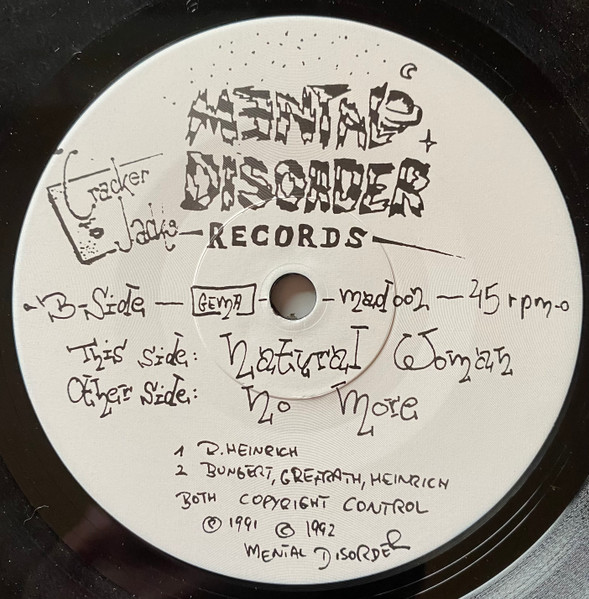 MENTAL
DISORDER
RECORDS
Cracker
Jacks
B-Side — GEMA — mad002 — 45 rpm
This Side: Natural Woman
Other Side: No More
1 D. HEINRICH
2 BUNGERT, GREFRATH, HEINRICH
BOTH COPYRIGHT CONTROL
Ⓟ 1991 © 1992
MENTAL DISORDER